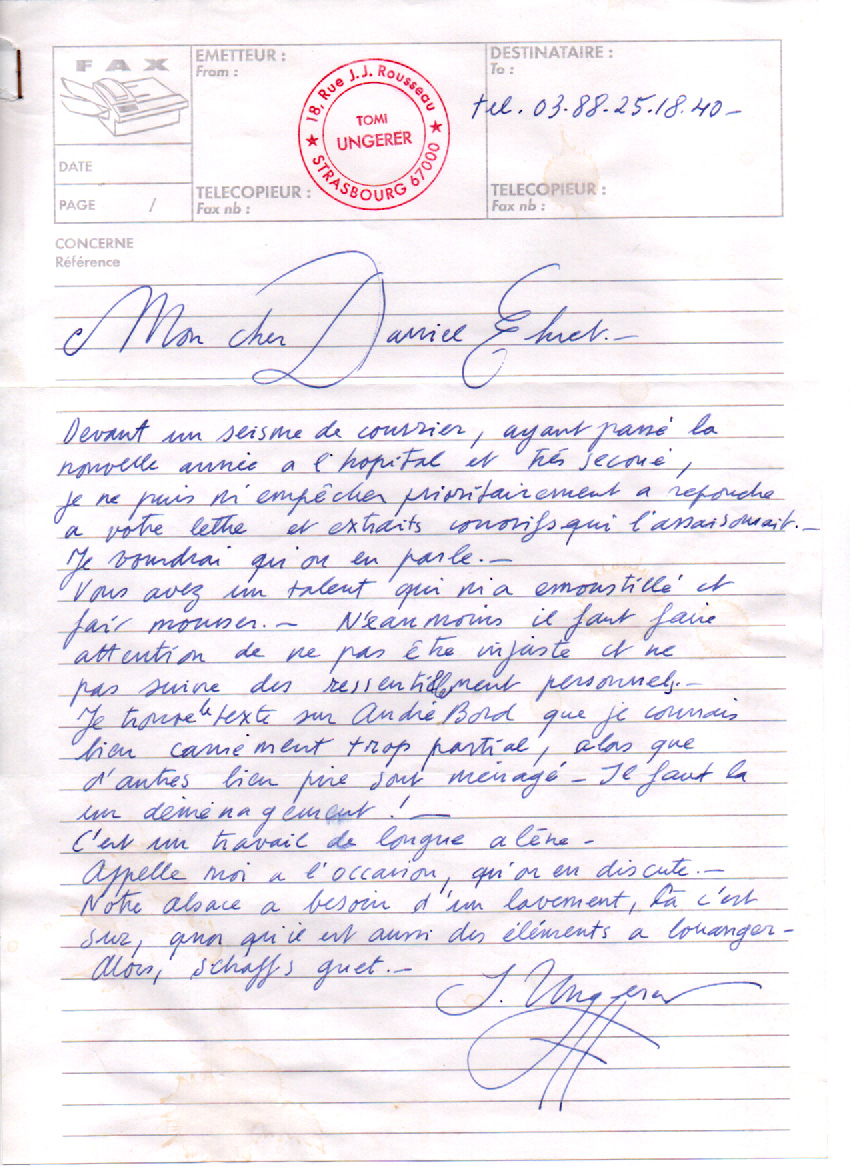 FAX
EMETTEUR :
From :
DESTINATAIRE :
To :
tel. 03.88.25.18.40 -
18, Rue J.J. Rousseau
TOMI
UNGERER
STRASBOURG 67000
DATE
PAGE /
TELECOPIEUR :
Fax nb :
TELECOPIEUR :
Fax nb :
CONCERNE
Référence
Mon cher Daniel Ehret. -
Devant un seisme de courrier, ayant passé la
nouvelle année a l'hopital et très secoué,
je ne puis m'empêcher prioritairement a repondre
a votre lettre et extraits qui l'assaisonnait. -
Je voudrai qu'on en parle. -
Vous avez un talent qui m'a emoustillé et
fait mousser. - Néanmoins il faut faire
attention de ne pas être injuste et ne
pas suivre des personnels. -
Je trouve le texte sur André Bord que je connais
bien carrément trop partial, alors que
d'autres bien pire sont ménagé - Il faut la
un déménagement ! -
C'est un travail de longue alène -
Appelle moi a l'occasion, qu'on en discute. -
Notre alsace a besoin d'un lavement, là c'est
sur, quoi qu'il est aussi des éléments a louanger -
Alors, schaff's guet. -
T. Ungerer